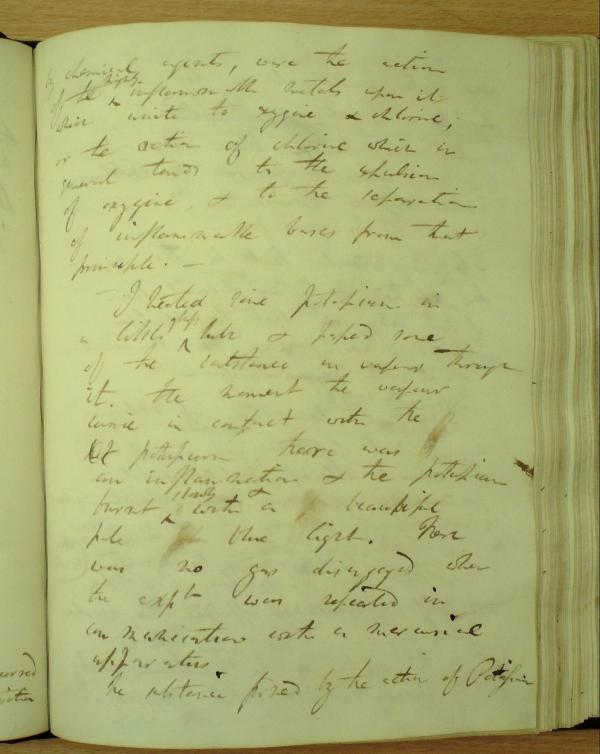 by chemical agents, were the action
of the highly inflammable metals upon it
which unite to oxygine & chlorine;
or the action of chlorine which in
general tends to the expulsion
of oxygine, & to the separation
of inflammable bases from that
principle. —
I heated some potassium in
a little glass tube & passed some
of the substance in vapour through
it. the moment the vapour
came in contact with the
hot potassium there was
an inflammation & the potassium
burnt slowly & with a beautiful
pale blue light. There
was no gas disengaged when
the expt was repeated in
communication with a mercurial
apparatus
The substance formed by the action of Potassium